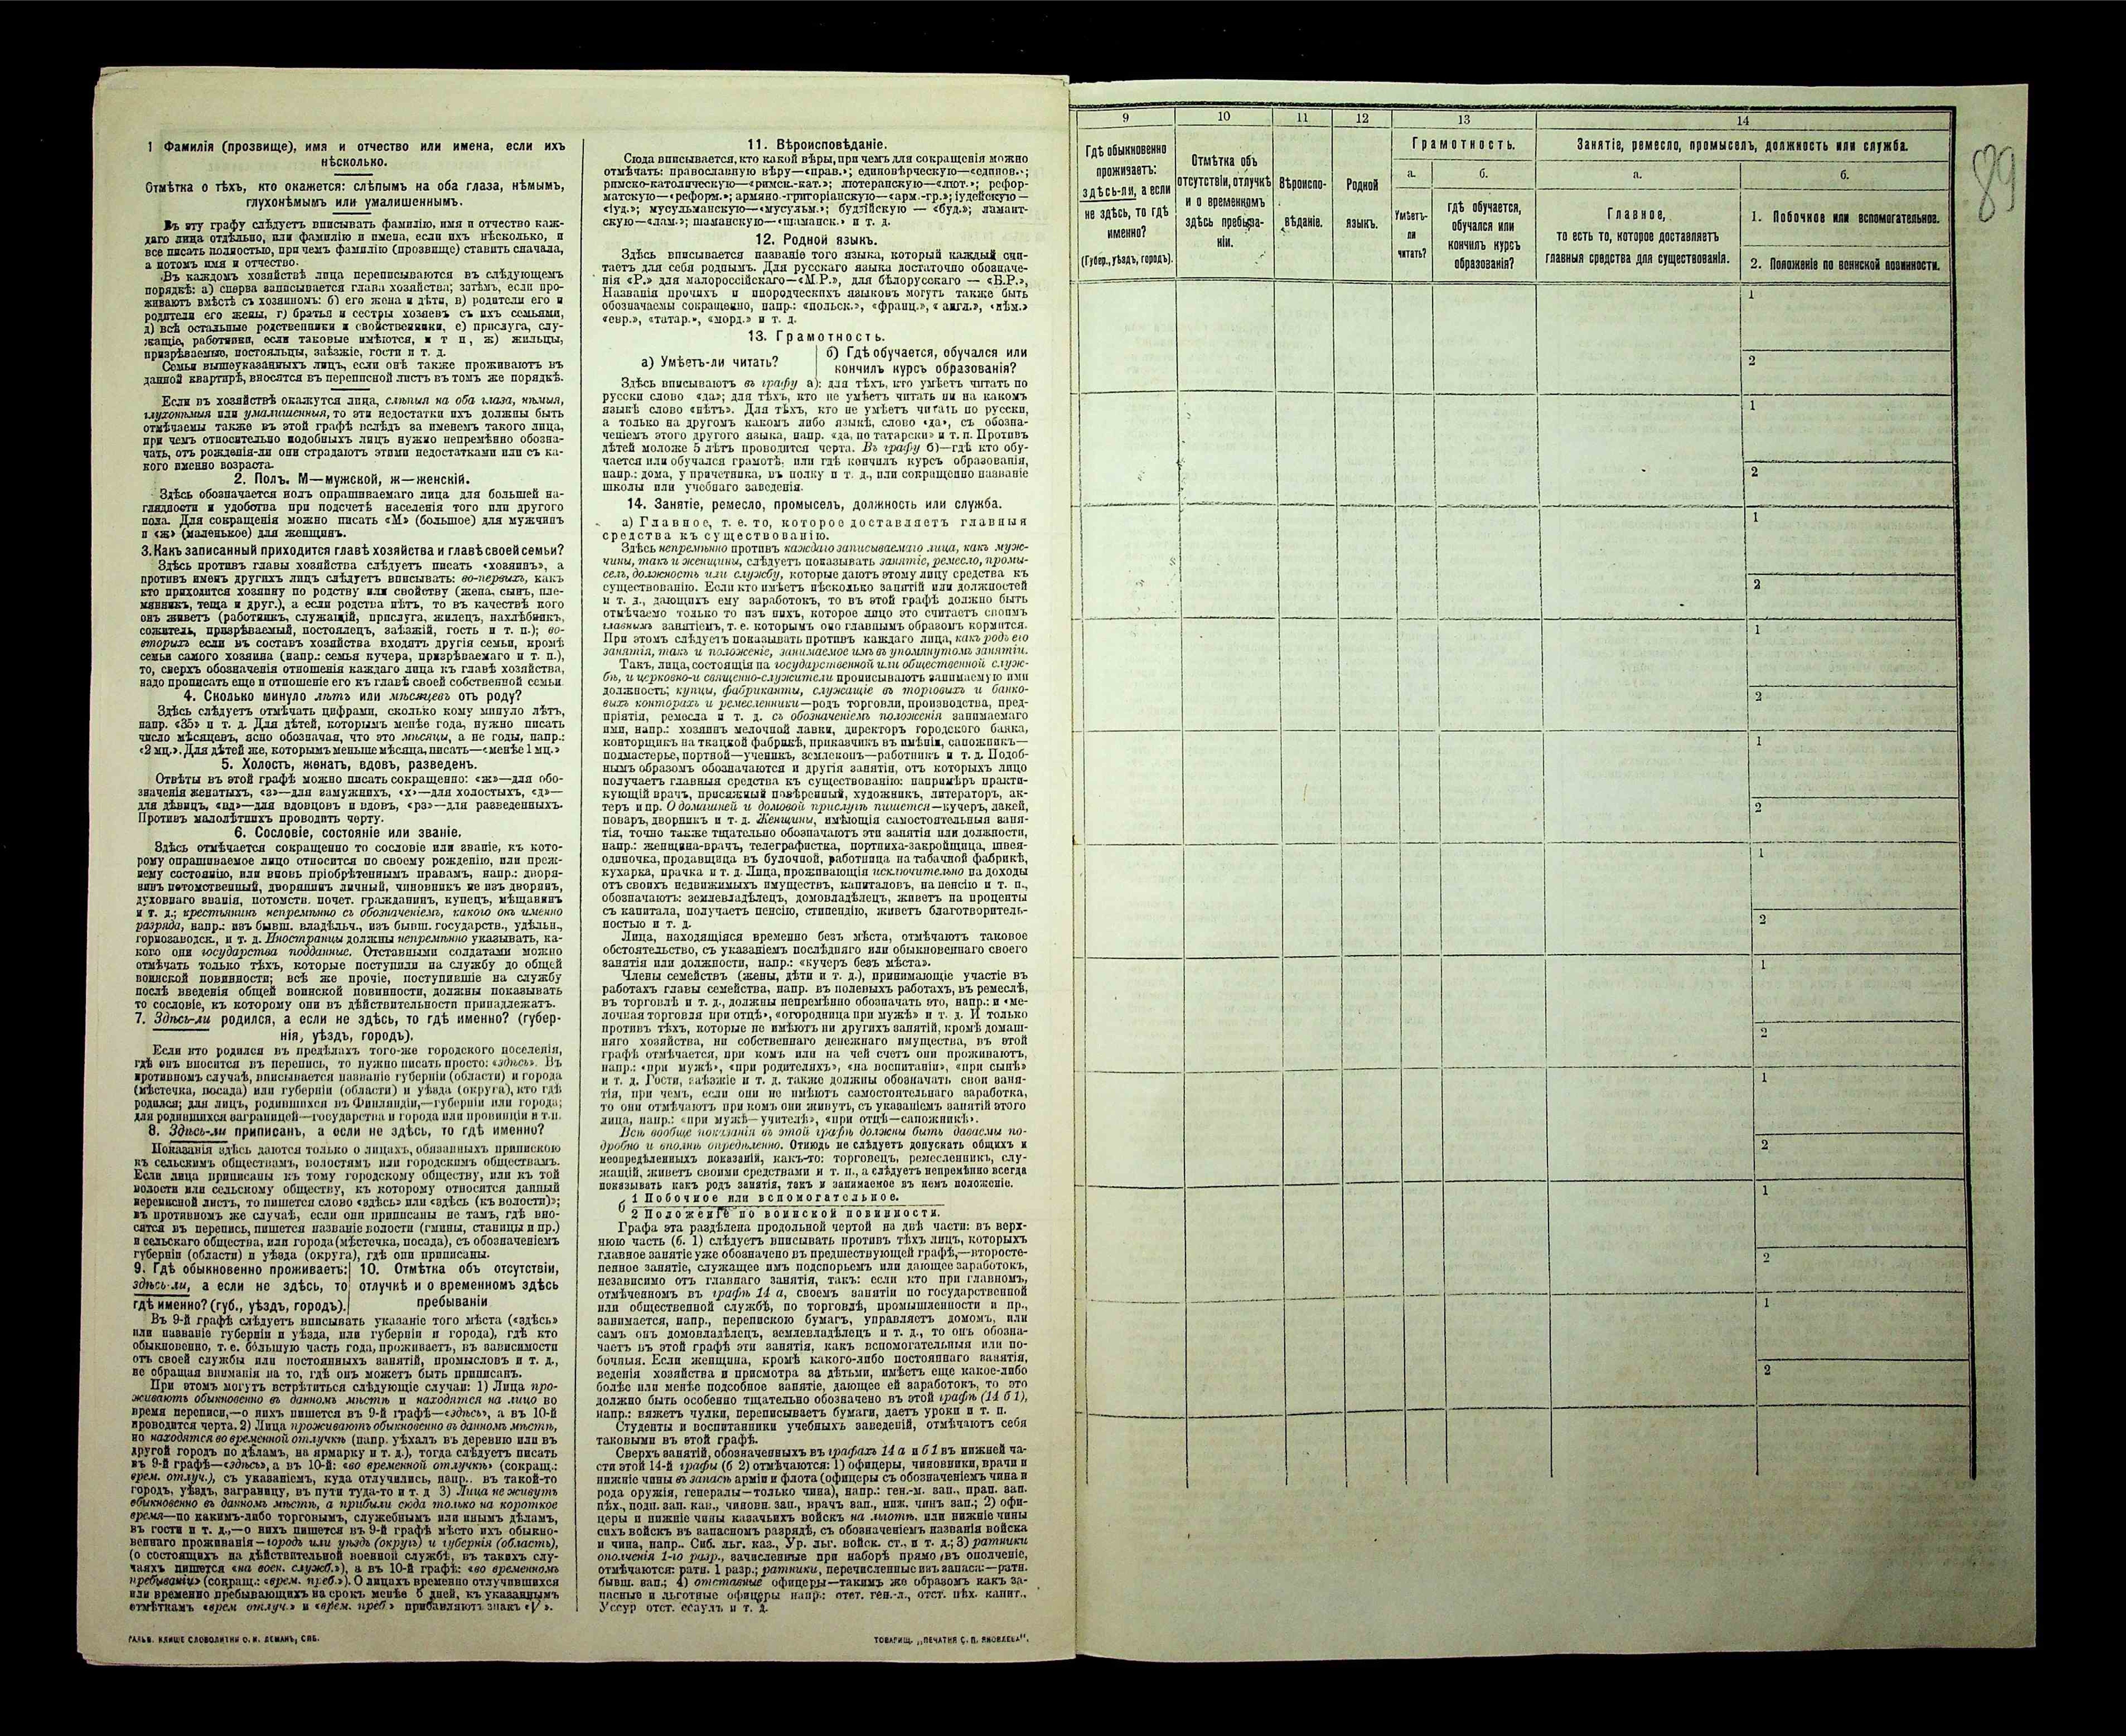 1 Фамилія (прозвище), имя и отчество или имена, если ихъ
нѣсколько.
Отмѣтка о тѣхъ, кто окажется: слѣпымъ на оба глаза, нѣмымъ,
глухонѣмымъ или умалишеннымъ.
Въ эту графу слѣдуетъ вписывать фамилію, имя и отчество каж-
даго лица отдѣльно, или фамилію и имена, если ихъ нѣсколько, и
все писать полностью, при чемъ фамилію (прозвище) ставить сначала,
а потомъ имя и отчество.
Въ каждомъ хозяйствѣ лица переписываются въ слѣдующемъ
порядкѣ: а) сперва записывается глава хозяйства; затѣмъ, если про-
живаютъ вмѣстѣ съ хозяиномъ: б) его жена и дѣти, в) родители его и
родители его жены, г) братья и сестры хозяевъ съ ихъ семьями,
д) всѣ остальные родственники и свойственники, е) прислуга, слу-
жащіе, работники, если таковые имѣются, и т п, ж) жильцы,
призрѣваемые, постояльцы, заѣзжіе, гости и т. д.
Семьи вышеуказанныхъ лицъ, если онѣ также проживаютъ въ
данной квартирѣ, вносятся въ переписной листъ въ томъ же порядкѣ.
Если въ хозяйствѣ окажутся лица, слѣпыя на оба глаза, нѣмыя,
глухонѣмыя или умалишенныя, то эти недостатки ихъ должны быть
отмѣчаемы также въ этой графѣ вслѣдъ за именемъ такого лица,
при чемъ относительно подобныхъ лицъ нужно непремѣнно обозна-
чать, отъ рожденія-ли они страдаютъ этими недостатками или съ ка-
кого именно возраста.
2. Полъ. М—мужской, ж—женскій.
Здѣсь обозначается полъ опрашиваемаго лица для большей на-
глядности и удобства при подсчетѣ населенія того или другого
пола. Для сокращенія можно писать «М» (большое) для мужчинъ
и «ж» (маленькое) для женщинъ.
3. Какъ записанный приходится главѣ хозяйства и главѣ своей семьи?
Здѣсь противъ главы хозяйства слѣдуетъ писать «хозяинъ», а
противъ именъ другихъ лицъ слѣдуетъ вписывать: во-первыхъ, какъ
кто приходится хозяину по родству или свойству (жена, сынъ, пле-
мянникъ, теща и друг.), а если родства нѣтъ, то въ качествѣ кого
онъ живетъ (работникъ, служащій, прислуга, жилецъ, нахлѣбникъ,
сожитель, призрѣваемый, постоялецъ, заѣзжій, гость и т. п.); во-
вторыхъ если въ составъ хозяйства входятъ другія семьи, кромѣ
семьи самого хозяина (напр.: семья кучера, призрѣваемаго и т. п.),
то, сверхъ обозначенія отношенія каждаго лица къ главѣ хозяйства,
надо прописать еще и отношеніе его къ главѣ своей собственной семьи
4. Сколько минуло лѣтъ или мѣсяцевъ отъ роду?
Здѣсь слѣдуетъ отмѣчать цифрами, сколько кому минуло лѣтъ,
напр. «35» и т. д. Для дѣтей, которымъ менѣе года, нужно писать
число мѣсяцевъ, ясно обозначая, что это мѣсяцы, а не годы, напр.:
«2 мц.». Для дѣтей же, которымъ меньше мѣсяца, писать—«менѣе 1 мц.»
5. Холостъ, женатъ, вдовъ, разведенъ.
Отвѣты въ этой графѣ можно писать сокращенно: «ж»—для обо-
значенія женатыхъ, «з»—для замужнихъ, «х»—для холостыхъ, «д»—
для дѣвицъ, «вд»—для вдовцовъ и вдовъ, «рз»—для разведенныхъ.
Противъ малолѣтнихъ проводить черту.
6. Сословіе, состояніе или званіе.
Здѣсь отмѣчается сокращенно то сословіе или званіе, къ кото-
рому опрашиваемое лицо относится по своему рожденію, или преж-
нему состоянію, или вновь пріобрѣтеннымъ правамъ, напр.: дворя-
нинъ потомственный, дворянинъ личный, чиновникъ не изъ дворянъ,
духовнаго званія, потомств. почет. гражданинъ, купецъ, мѣщанинъ
и т. д.; крестьянинъ непремѣнно съ обозначеніемъ, какого онъ именно
разряда, напр.: изъ бывш. владѣльч., изъ бывш. государств., удѣльн.,
горнозаводск., и т. д. Иностранцы должны непремѣнно указывать, ка-
кого они государства подданные. Отставными солдатами можно
отмѣчать только тѣхъ, которые поступили на службу до общей
воинской повинности; всѣ же прочіе, поступившіе на службу
послѣ введенія общей воинской повинности, должны показывать
то сословіе, къ которому они въ дѣйствительности принадлежатъ.
7. Здѣсь-ли родился, а если не здѣсь, то гдѣ именно? (губер-
нія, уѣздъ, городъ).
Если кто родился въ предѣлахъ того-же городского поселенія,
гдѣ онъ вносится въ перепись, то нужно писать просто: «здѣсь». Въ
противномъ случаѣ, вписывается названіе губерніи (области) и города
(мѣстечка, посада) или губерніи (области) и уѣзда (округа), кто гдѣ
родился; для лицъ, родившихся въ Финляндіи,—губерніи или города;
для родившихся заграницей—государства и города или провинціи и т.п.
8. Здѣсь-ли приписанъ, а если не здѣсь, то гдѣ именно?
Показанія здѣсь даются только о лицахъ, обязанныхъ припискою
къ сельскимъ обществамъ, волостямъ или городскимъ обществамъ.
Если лица приписаны къ тому городскому обществу, или къ той
волости или сельскому обществу, къ которому относится данный
переписной листъ, то пишется слово «здѣсь» или «здѣсь (къ волости)»;
въ противномъ же случаѣ, если они приписаны не тамъ, гдѣ вно-
сятся въ перепись, пишется названіе волости (гмины, станицы и пр.)
и сельскаго общества, или города (мѣстечка, посада), съ обозначеніемъ
губерніи (области) и уѣзда (округа), гдѣ они приписаны.
9. Гдѣ обыкновенно проживаетъ:
здѣсь-ли, а если не здѣсь, то
гдѣ именно? (губ., уѣздъ, городъ).
10. Отмѣтка объ отсутствіи,
отлучкѣ и о временномъ здѣсь
пребываніи
Въ 9-й графѣ слѣдуетъ вписывать указаніе того мѣста («здѣсь»
или названіе губерніи и уѣзда, или губерніи и города), гдѣ кто
обыкновенно, т. е. бо́льшую часть года, проживаетъ, въ зависимости
отъ своей службы или постоянныхъ занятій, промысловъ и т. д.,
не обращая вниманія на то, гдѣ онъ можетъ быть приписанъ.
При этомъ могутъ встрѣтиться слѣдующіе случаи: 1) Лица про-
живаютъ обыкновенно въ данномъ мѣстѣ и находятся на лицо во
время переписи,—о нихъ пишется въ 9-й графѣ—«здѣсь», а въ 10-й
проводится черта. 2) Лица проживаютъ обыкновенно въ данномъ мѣстѣ,
но находятся во временной отлучкѣ (напр. уѣхалъ въ деревню или въ
другой городъ по дѣламъ, на ярмарку и т. д.), тогда слѣдуетъ писать
въ 9-й графѣ—«здѣсь», а въ 10-й: «во временной отлучкѣ» (сокращ.:
врем. отлуч.), съ указаніемъ, куда отлучились, напр.. въ такой-то
городъ, уѣздъ, заграницу, въ пути туда-то и т. д 3) Лица не живутъ
обыкновенно въ данномъ мѣстѣ, а прибыли сюда только на короткое
время—по какимъ-либо торговымъ, служебнымъ или инымъ дѣламъ,
въ гости и т. д.,—о нихъ пишется въ 9-й графѣ мѣсто ихъ обыкно-
веннаго проживанія—городъ или уѣздъ (округъ) и губернія (область),
(о состоящихъ на дѣйствительной военной службѣ, въ такихъ слу-
чаяхъ пишется «на воен. служб.»), а въ 10-й графѣ: «во временномъ
пребываніи» (сокращ.: «врем. преб.»). О лицахъ временно отлучившихся
или временно пребывающихъ на срокъ менѣе 5 дней, къ указаннымъ
отмѣткамъ «врем отлуч.» и «врем. преб.» прибавляютъ знакъ «V».
ГАЛЬВ. КЛИШЕ СЛОВОЛИТНИ О. И. ЛЕМАНЪ, СПБ.
11. Вѣроисповѣданіе.
Сюда вписывается, кто какой вѣры, при чемъ для сокращенія можно
отмѣчать: православную вѣру—«прав.»; единовѣрческую—«единов.»;
римско-католическую—«римск.-кат.»; лютеранскую—«лют.»; рефор-
матскую—«реформ.»; армяно-григоріанскую—«арм.-гр.»; іудейскую—
«іуд.»; мусульманскую—«мусульм.»; буддійскую — «буд.»; ламаит-
скую—«лам.»; шаманскую—«шаманск.» и т. д.
12. Родной языкъ.
Здѣсь вписывается названіе того языка, который каждый счи-
таетъ для себя роднымъ. Для русскаго языка достаточно обозначе-
нія «Р.» для малороссійскаго—«М.Р.», для бѣлорусскаго — «Б.Р.»,
Названія прочихъ и инородческихъ языковъ могутъ также быть
обозначаемы сокращенно, напр.: «польск.», «франц.», «англ.», «нѣм.»
«евр.», «татар.», «морд.» и т. д.
13. Грамотность.
а) Умѣетъ-ли читать?
б) Гдѣ обучается, обучался или
кончилъ курсъ образованія?
Здѣсь вписываютъ въ графу а): для тѣхъ, кто умѣетъ читать по
русски слово «да»; для тѣхъ, кто не умѣетъ читать ни на какомъ
языкѣ слово «нѣтъ». Для тѣхъ, кто не умѣетъ читать по русски,
а только на другомъ какомъ либо языкѣ, слово «да», съ обозна-
ченіемъ этого другого языка, напр. «да, по татарски» и т. п. Противъ
дѣтей моложе 5 лѣтъ проводится черта. Въ графу б)—гдѣ кто обу-
чается или обучался грамотѣ, или гдѣ кончилъ курсъ образованія,
напр.: дома, у причетника, въ полку и т. д., или сокращенно названіе
школы или учебнаго заведенія.
14. Занятіе, ремесло, промыселъ, должность или служба.
а) Главное, т. е. то, которое доставляетъ главныя
средства къ существованію.
Здѣсь непремѣнно противъ каждаго записываемаго лица, какъ муж-
чины, такъ и женщины, слѣдуетъ показывать занятіе, ремесло, промы-
селъ, должность или службу, которые даютъ этому лицу средства къ
существованію. Если кто имѣетъ нѣсколько занятій или должностей
и т. д., дающихъ ему заработокъ, то въ этой графѣ должно быть
отмѣчаемо только то изъ нихъ, которое лицо это считаетъ своимъ
главнымъ занятіемъ, т. е. которымъ оно главнымъ образомъ кормится.
При этомъ слѣдуетъ показывать противъ каждаго лица, какъ родъ его
занятія, такъ и положеніе, занимаемое имъ въ упомянутомъ занятіи.
Такъ, лица, состоящія на государственной или общественной служ-
бѣ, и церковно-и священно-служители прописываютъ занимаемую ими
должность; купцы, фабриканты, служащіе въ торговыхъ и банко-
выхъ конторахъ и ремесленники—родъ торговли, производства, пред-
пріятія, ремесла и т. д. съ обозначеніемъ положенія занимаемаго
ими, напр.: хозяинъ мелочной лавки, директоръ городского банка,
конторщикъ на ткацкой фабрикѣ, приказчикъ въ имѣніи, сапожникъ—
подмастерье, портной—ученикъ, землекопъ—работникъ и т. д. Подоб-
нымъ образомъ обозначаются и другія занятія, отъ которыхъ лицо
получаетъ главныя средства къ существованію: напримѣръ практи-
кующій врачъ, присяжный повѣренный, художникъ, литераторъ, ак-
теръ и пр. О домашней и домовой прислугѣ пишется—кучеръ, лакей,
поваръ, дворникъ и т. д. Женщины, имѣющія самостоятельныя заня-
тія, точно также тщательно обозначаютъ эти занятія или должности,
напр.: женщина-врачъ, телеграфистка, портниха-закройщица, швея-
одиночка, продавщица въ булочной, работница на табачной фабрикѣ,
кухарка, прачка и т. д. Лица, проживающія исключительно на доходы
отъ своихъ недвижимыхъ имуществъ, капиталовъ, на пенсію и т. п.,
обозначаютъ: землевладѣлецъ, домовладѣлецъ, живетъ на проценты
съ капитала, получаетъ пенсію, стипендію, живетъ благотворитель-
ностью и т. д.
Лица, находящіяся временно безъ мѣста, отмѣчаютъ таковое
обстоятельство, съ указаніемъ послѣдняго или обыкновеннаго своего
занятія или должности, напр.: «кучеръ безъ мѣста».
Члены семействъ (жены, дѣти и т. д.), принимающіе участіе въ
работахъ главы семейства, напр. въ полевыхъ работахъ, въ ремеслѣ,
въ торговлѣ и т. д., должны непремѣнно обозначать это, напр.: и «ме-
лочная торговля при отцѣ», «огородница при мужѣ» и т. д. И только
противъ тѣхъ, которые не имѣютъ ни другихъ занятій, кромѣ домаш-
няго хозяйства, ни собственнаго денежнаго имущества, въ этой
графѣ отмѣчается, при комъ или на чей счетъ они проживаютъ,
напр.: «при мужѣ», «при родителяхъ», «на воспитаніи», «при сынѣ»
и т. д. Гости, заѣзжіе и т. д. также должны обозначать свои заня-
тія, при чемъ, если они не имѣютъ самостоятельнаго заработка,
то они отмѣчаютъ при комъ они живутъ, съ указаніемъ занятій этого
лица, напр.: «при мужѣ—учителѣ», «при отцѣ—сапожникѣ».
Всѣ вообще показанія въ этой графѣ должны быть даваемы по-
дробно и вполнѣ опредѣленно. Отнюдь не слѣдуетъ допускать общихъ и
неопредѣленныхъ показаній, какъ-то: торговецъ, ремесленникъ, слу-
жащій, живетъ своими средствами и т. п., а слѣдуетъ непремѣнно всегда
показывать какъ родъ занятія, такъ и занимаемое въ немъ положеніе.
б 1 Побочное или вспомогательное.
2 Положеніе по воинской повинности.
Графа эта раздѣлена продольной чертой на двѣ части: въ верх-
нюю часть (б. 1) слѣдуетъ вписывать противъ тѣхъ лицъ, которыхъ
главное занятіе уже обозначено въ предшествующей графѣ,—второсте-
пенное занятіе, служащее имъ подспорьемъ или дающее заработокъ,
независимо отъ главнаго занятія, такъ: если кто при главномъ,
отмѣченномъ въ графѣ 14 а, своемъ занятіи по государственной
или общественной службѣ, по торговлѣ, промышленности и пр.,
занимается, напр., перепискою бумагъ, управляетъ домомъ, или
самъ онъ домовладѣлецъ, землевладѣлецъ и т. д., то онъ обозна-
чаетъ въ этой графѣ эти занятія, какъ вспомогательныя или по-
бочныя. Если женщина, кромѣ какого-либо постояннаго занятія,
веденія хозяйства и присмотра за дѣтьми, имѣетъ еще какое-либо
болѣе или менѣе подсобное занятіе, дающее ей заработокъ, то это
должно быть особенно тщательно обозначено въ этой графѣ (14 б 1),
напр.: вяжетъ чулки, переписываетъ бумаги, даетъ уроки и т. п.
Студенты и воспитанники учебныхъ заведеній, отмѣчаютъ себя
таковыми въ этой графѣ.
Сверхъ занятій, обозначенныхъ въ графахъ 14 а и б 1 въ нижней ча-
сти этой 14-й графы (б 2) отмѣчаются: 1) офицеры, чиновники, врачи и
нижніе чины въ запасѣ арміи и флота (офицеры съ обозначеніемъ чина и
рода оружія, генералы—только чина), напр.: ген.-м. зап., прап. зап.
пѣх., подп. зап. кав., чиновн. зап., врачъ зап., ниж. чинъ зап.; 2) офи-
церы и нижніе чины казачьихъ войскъ на льготѣ, или нижніе чины
сихъ войскъ въ запасномъ разрядѣ, съ обозначеніемъ названія войска
и чина, напр.. Сиб. льг. каз., Ур. льг. войск. ст., и т. д.; 3) ратники
ополченія 1-го разр., зачисленные при наборѣ прямо въ ополченіе,
отмѣчаются: ратн. 1 разр.; ратники, перечисленные изъ запаса:—ратн.
бывш. зап.; 4) отставные офицеры—такимъ же образомъ какъ за-
пасные и льготные офицеры напр.: отст. ген.-л., отст. пѣх. капит.,
Уссур отст. есаулъ и т. д.
ТОВАРИЩ. „ПЕЧАТНЯ С. П. ЯКОВЛЕВА“.
89
9
10
11
12
13
14
Гдѣ обыкновенно
проживаетъ:
здѣсь-ли, а если
не здѣсь, то гдѣ
именно?
(Губер., уѣздъ, городъ).
Отмѣтка объ
отсутствіи, отлучкѣ
и о временномъ
здѣсь пребыва-
ніи.
Вѣроиспо-
вѣданіе.
Родной
языкъ.
Грамотность.
а.
Умѣетъ-
ли
читать?
б.
гдѣ обучается,
обучался или
кончилъ курсъ
образованія?
Занятіе, ремесло, промыселъ, должность или служба.
а.
Главное,
то есть то, которое доставляетъ
главныя средства для существованія.
б.
1. Побочное или вспомогательное.
2. Положеніе по воинской повинности.
1
2
1
2
1
2
1
2
1
2
1
2
1
2
1
2
1
2
1
2